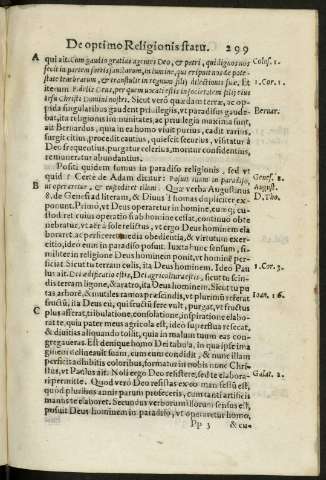 De optimo Religionis statu. 299
A qui ait. Cum gaudio gratias agentes Deo, & patri, qui dignos nos Colos. 1.
fecit in partem sortis sanctorum, in lumine, qui eripuit nos de pote-
state tenebrarum, & transtulit in regnum filij dilectionis suæ. Et 1. Cor. 1.
iterum Fidelis Deus, per quem vocati estis in societatem filij eius
Iesu Christi Domini nostri. Sicut verò quædam terræ, ac op-
pida singularibus gaudent priuilegijs, vt paradisus gaude- Bernar.
bat, ita religionis immunitates, ac priuilegia maxima sunt,
ait Bernardus, quia in ea homo viuit purius, cadit rarius,
surgit citius, procedit cautius, quiescit securius, visitatur à
Deo frequentius, purgatur celerius, moritur confidentius,
remuneratur abundantius.
Positi quidem sumus in paradiso religionis, sed vt
quid? Certè de Adam dicitur: Posuit illum in paradiso, Genes. 2.
B vt operaretur, & custodiret illum. Quæ verba Augustinus August.
8. de Genesi ad literam, & Diuus Thomas dupliciter ex- D. Tho.
ponunt. Primò, vt Deus operaretur in homine, eumq; cu-
stodiret cuius operatio si ab homine cesset, continuò obte
nebratur, vt aër à sole relictus, vt ergo Deus hominem ela
boraret ac perficeret media obedientia, & virtutum exer-
citio, ideo eum in paradiso posuit. Iuxta hunc sensum, si-
militer in religione Deus hominem ponit, vt homine per-
ficiat. Sicut tu terram colis, ita Deus hominem. Ideo Pau 1. Cor. 3.
lus ait. Dei ædificatio estis, Dei agricultura estis, sicut tu scin-
dis terram ligone, & aratro, ita Deus hominem. Sicut tu pu
tas arborē, & inutiles ramos præscindis, vt plurimū referat Ioan. 16.
fructū, ita Deus eū, qui fructū fere vult, purgat, vt fructus
C plus afferat, tribulatione, consolatione, inspiratione elabo
rat te, quia pater meus agricola est, ideo superflua resecat,
& diuitias aliquando tollit, quia in malum tuum eas con-
gregaueras. Est denique homo Dei tabula, in qua ipse ima
ginem delineauit suam, cum eum condidit, & nunc illam
perficit adhibitis coloribus, formatus in nobis nunc Chri-
stus, vt Paulus ait. Noli ergo Deo resistere, sed te elabora- Galat. 2.
ri permitte. Quod verò Deo resistas ex eo manifestū est,
quòd pluribus annis parum profeceris, cum tanti artificis
manus te elaboret. Secundus verborum illorum sensus est,
posuit Deus hominem in paradiso, vt operaretur homo,
Pp 3 & cu-